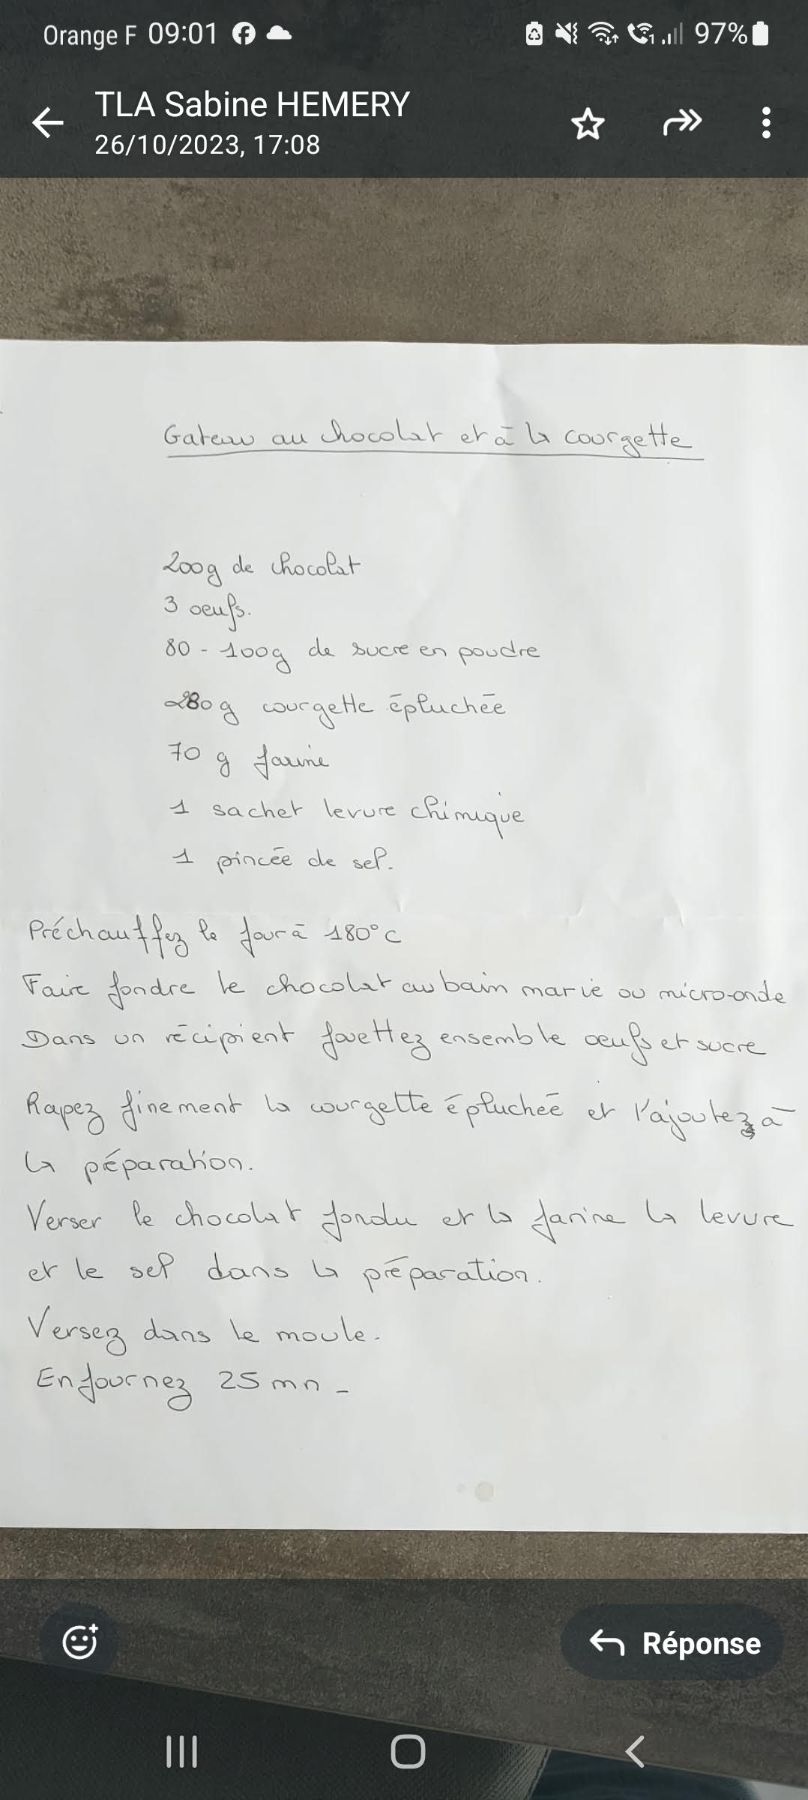 Orange F 09:01 97%
TLA Sabine HEMERY
26/10/2023, 17:08
Gateau au chocolat et à la courgette
200g de chocolat
3 oeufs.
80 - 100g de sucre en poudre
280g courgette épluchée
70 g farine
1 sachet levure chimique
1 pincée de sel.
Préchauffez le four à 180°C
Faire fondre le chocolat au bain marie ou micro-onde
Dans un récipient fouettez ensemble oeufs et sucre
Rapez finement la courgette épluchée et l'ajoutez à
la péparation.
Verser le chocolat fondu et la farine la levure
et le sel dans la préparation.
Versez dans le moule.
Enfournez 25 mn -
Réponse